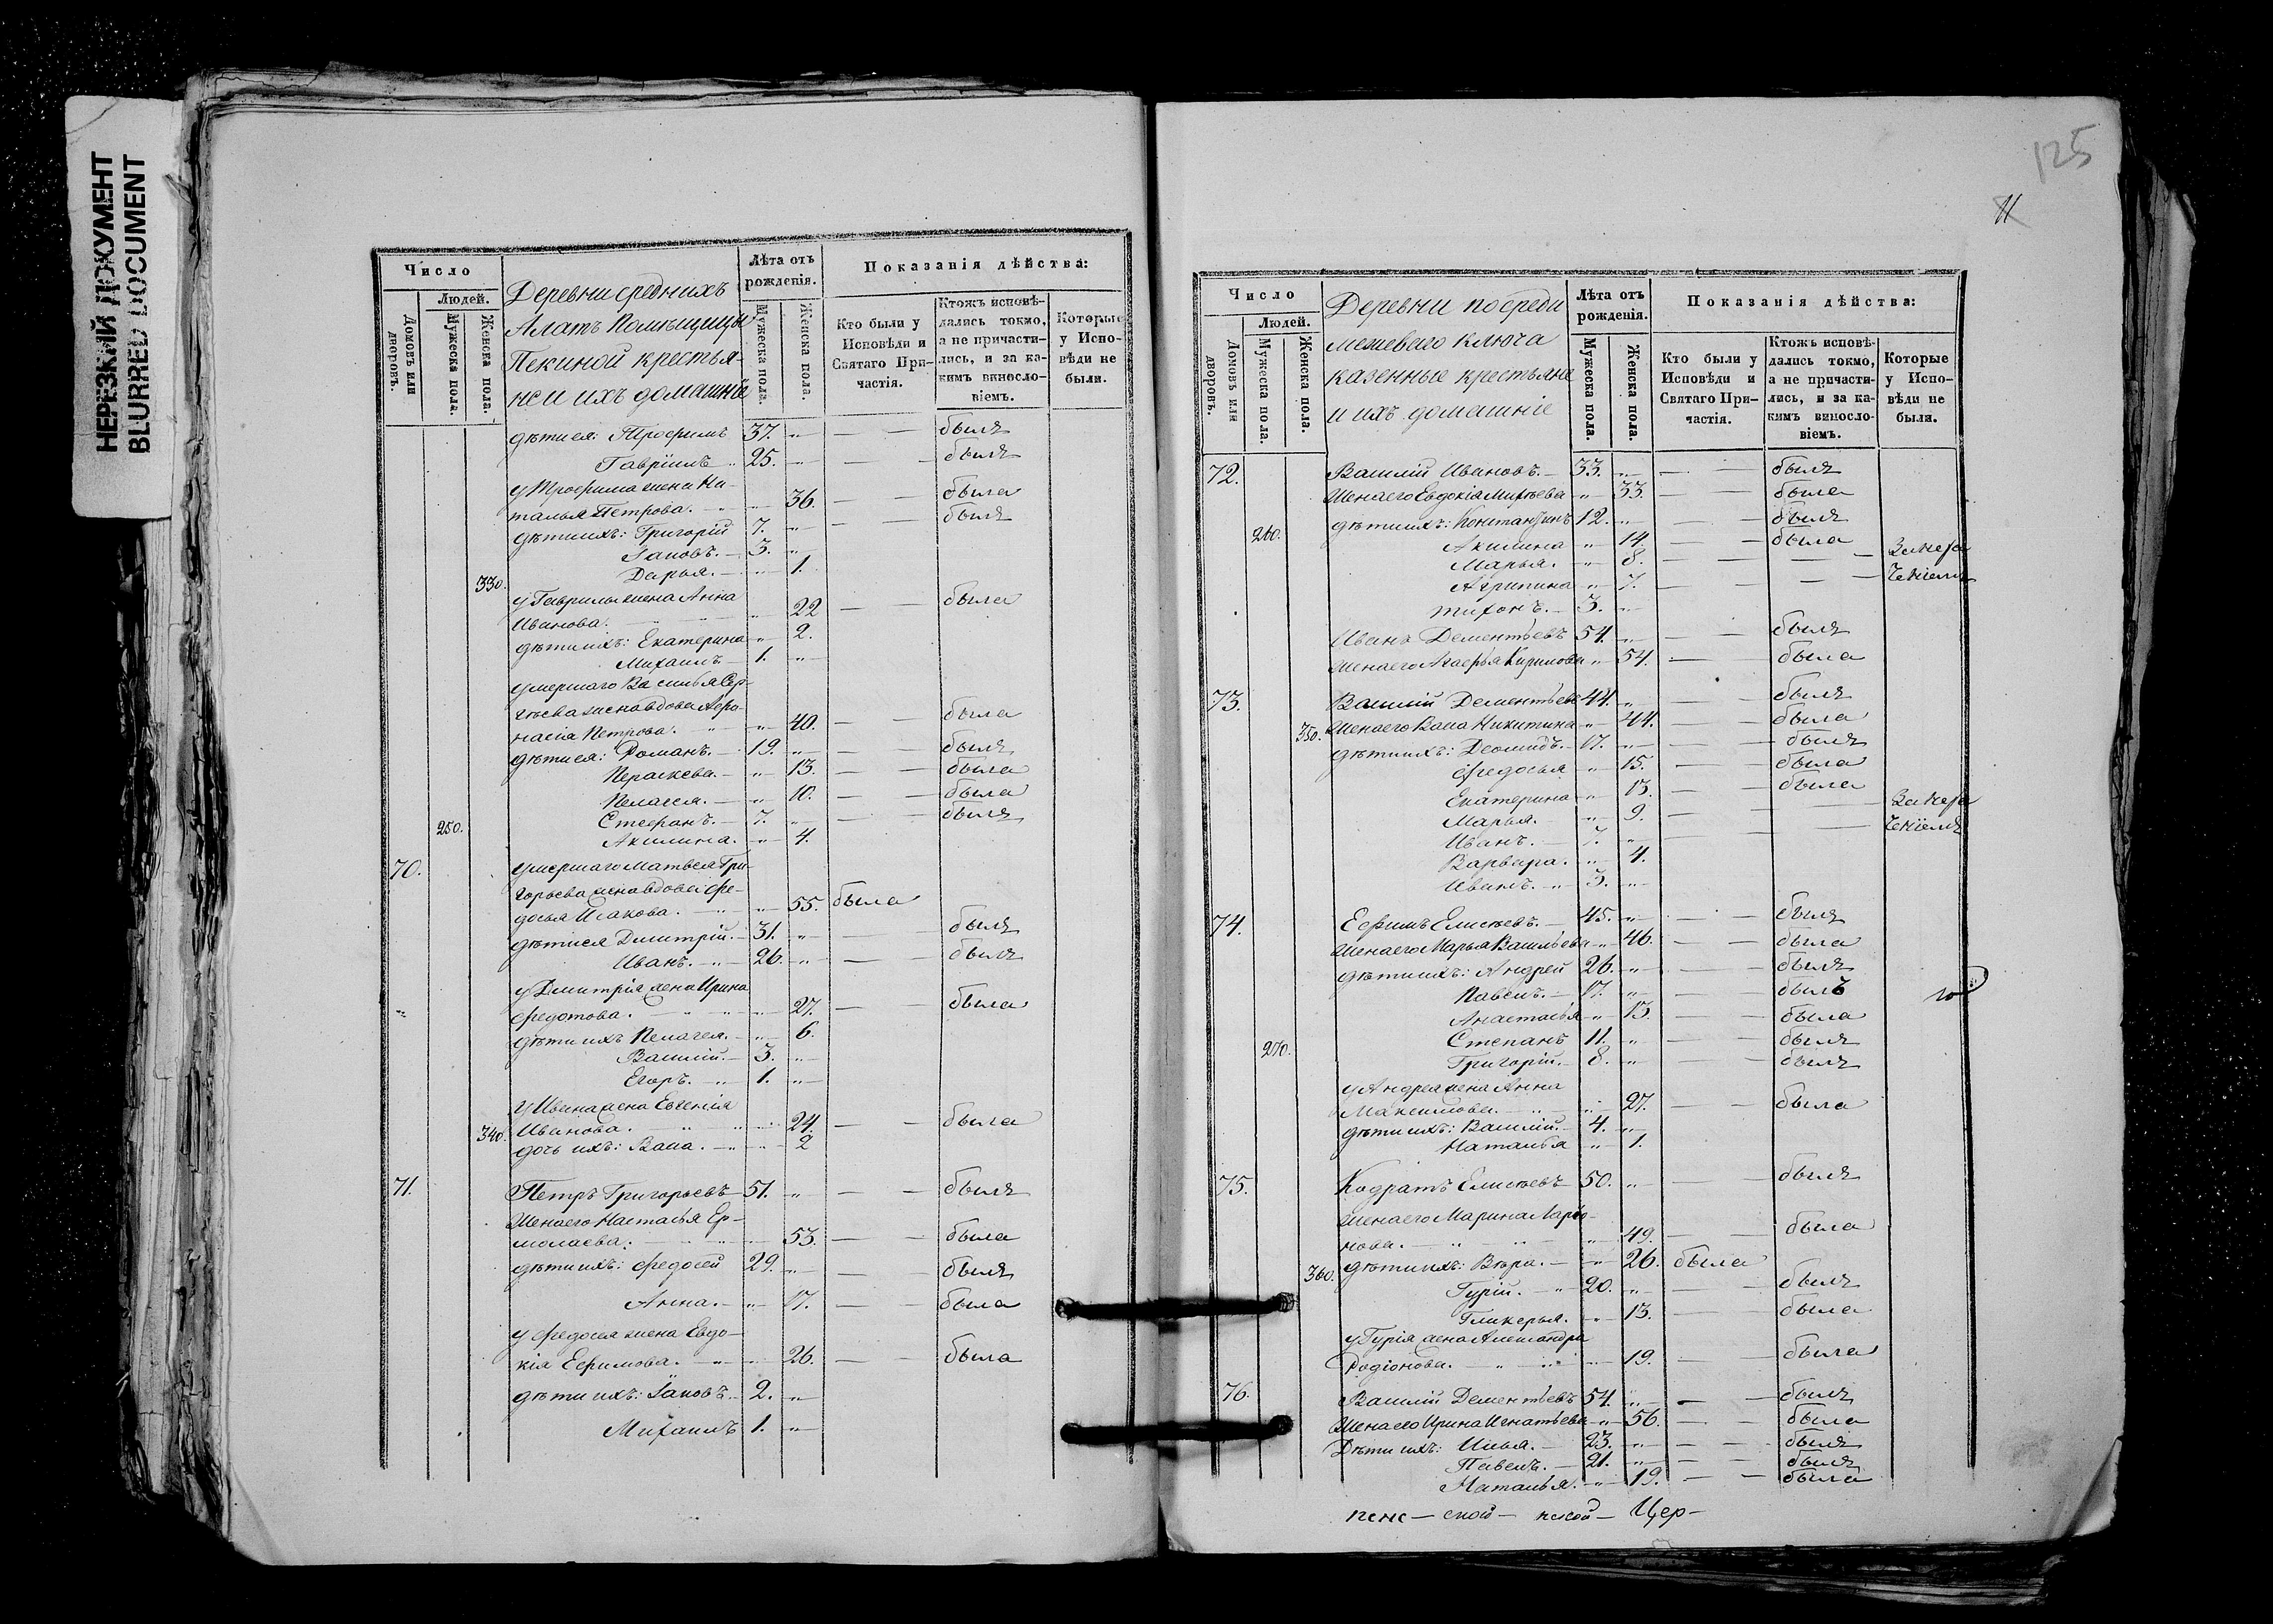 НЕРЕЗКИЙ ДОКУМЕНТ
BLURRED DOCUMENT
Число
Людей.
Домовъ или дворовъ.
Мужеска пола.
Женска пола.
Деревни среднихъ
Алатъ Помѣщицы
Пекиной крестья-
не и ихъ домашніе
Лѣта отъ рожденія.
Мужеска пола.
Женска пола.
Показанія дѣйства:
Кто были у Исповѣди и Святаго Причастія.
Ктожъ исповѣ-
дались токмо,
а не причасти-
лись, и за ка-
кимъ винносло-
віемъ.
Которые
у Испо-
вѣди не
были.
дѣти ея: Трофимъ 37. „ — — былъ
Гавріилъ „ 25. „ — — былъ
у Трофима жена На-
талья Петрова. „ 36. — — была
дѣти ихъ: Григорій 7. „ — — былъ
Іаковъ. 3. „
330. Дарья. „ 1.
у Гаврилы жена Анна
Иванова. „ 22 — — была
дѣти ихъ: Екатерина „ 2.
Михаилъ 1. „
умершаго Василья Сер-
гѣева жена вдова Афа-
насіа Петрова. „ 40. — — была
дѣти ея: Романъ. 19. „ — — былъ
Параскева. „ 13. — — была
Пелагея. „ 10. — — была
250. Стефанъ. 7. „ — — былъ
Акилина. „ 4.
70. умершаго Матвея Гри-
горьева жена вдова Фе-
досья Исакова. „ 55. была
дѣти ея Димитрій. 31. „ — — былъ
Иванъ. „ 26. „ — — былъ
у Димитрія жена Ирина
Федотова. „ 27. — — была
дѣти ихъ Пелагея. „ 6.
Василій. 3. „
Егоръ. „ 1. „
у Ивана жена Евгенія
340. Иванова. „ 24. — — была
дочь ихъ: Васа. „ 2
71. Петръ Григорьевъ 51. „ — — былъ
Жена его Настасья Ер-
молаева. „ 53. — — была
дѣти ихъ: Федосей 29. „ — — былъ
Анна. „ 17. — — была
у Федосея жена Евдо-
кія Ефимова. „ 26. — — была
дѣти ихъ: Іаковъ. 2. „
Михаилъ 1. „
125
11
Число
Людей.
Домовъ или дворовъ.
Мужеска пола.
Женска пола.
Деревни посреди
межеваго ключа
казенные крестьяне
и ихъ домашніе
Лѣта отъ рожденія.
Мужеска пола.
Женска пола.
Показанія дѣйства:
Кто были у Исповѣди и Святаго Причастія.
Ктожъ исповѣ-
дались токмо,
а не причасти-
лись, и за ка-
кимъ винносло-
віемъ.
Которые
у Испо-
вѣди не
были.
72. Василій Ивановъ. 33. „ — — былъ
Жена его Евдокія Михѣева „ 33. — — была
дѣти ихъ: Константинъ 12. „ — — былъ
260. Акилина „ 14. — — была
Марья. „ 8. — — За нера
Агрипина „ 7. — — ченіемъ
Тихонъ. 3. „
Иванъ Дементьевъ 54. „ — — былъ
Жена его Агафья Кирилова „ 54. — — была
73. Василій Дементьевъ 44. „ — — былъ
350. Жена его Васа Никитина „ 44. — — была
дѣти ихъ: Деомидъ. 17. „ — — былъ
Федосья „ 15. — — была
Екатерина „ 13. — — была
Марья. „ 9. — — За нера
Иванъ. 7. „ — — ченіемъ
Варвара. „ 4.
Иванъ. „ 3. „
74. Ефимъ Елисѣевъ. 45. „ — — былъ
Жена его Марья Васильева „ 46. — — была
дѣти ихъ: Андрей 26. „ — — былъ
Павелъ. 17. „ — — былъ
Анастасья „ 13. — — была
270. Степанъ 11. „ — — былъ
Григорій. 8. „ — — былъ
у Андрея жена Анна
Максимова. „ 27. — — была
дѣти ихъ: Василій. 4. „
Наталья „ 1.
75. Кодратъ Елисѣевъ 50. „ — — былъ
Жена его Марина Ларіо-
нова. „ 49. — — была
360. дѣти ихъ: Вѣра. „ 26. была
Гурій. „ 20. „ — былъ
Гликерья. „ 13. — была
у Гурія жена Александра
Родіонова. „ 19. — — была
76. Василій Дементьевъ 54. „ — — былъ
Жена его Ирина Игнатьева „ 56. — — была
Дѣти ихъ: Илья. 23. „ — — былъ
Павелъ. 21. „ — — былъ
Наталья. „ 19. — — была
пенс — ской — Цер —